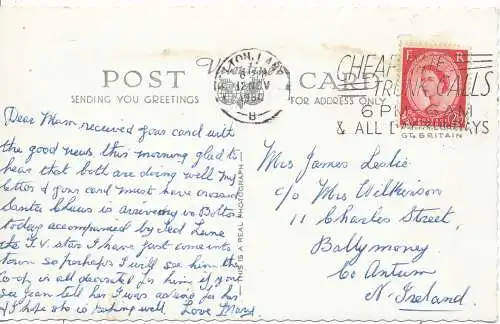 POST CARD
SENDING YOU GREETINGS
FOR ADDRESS ONLY
BOLTON, LANCS
6
12 NOV
1960
B
CHEAP
TRUNK CALLS
6 PM 6 AM
& ALL DAY SUNDAYS
E R
POSTAGE
REVENUE
2½D
GT. BRITAIN
THIS IS A REAL PHOTOGRAPH
Dear Mam received your card with
the good news this morning glad to
hear that both are doing well my
letter & your card must have crossed
Santa Claus is arriving in Bolton
today accompanied by Ted Lune
the T.V. star I have just come into
town so perhaps I will see him the
Co-op is all decorated for him if you
see Jean tell her I was asking for her
& I hope she is keeping well. Love Mary.
Mrs James Leslie
c/o Mrs Wilkinson
11 Charles Street,
Ballymoney
Co Antrim
N. Ireland.